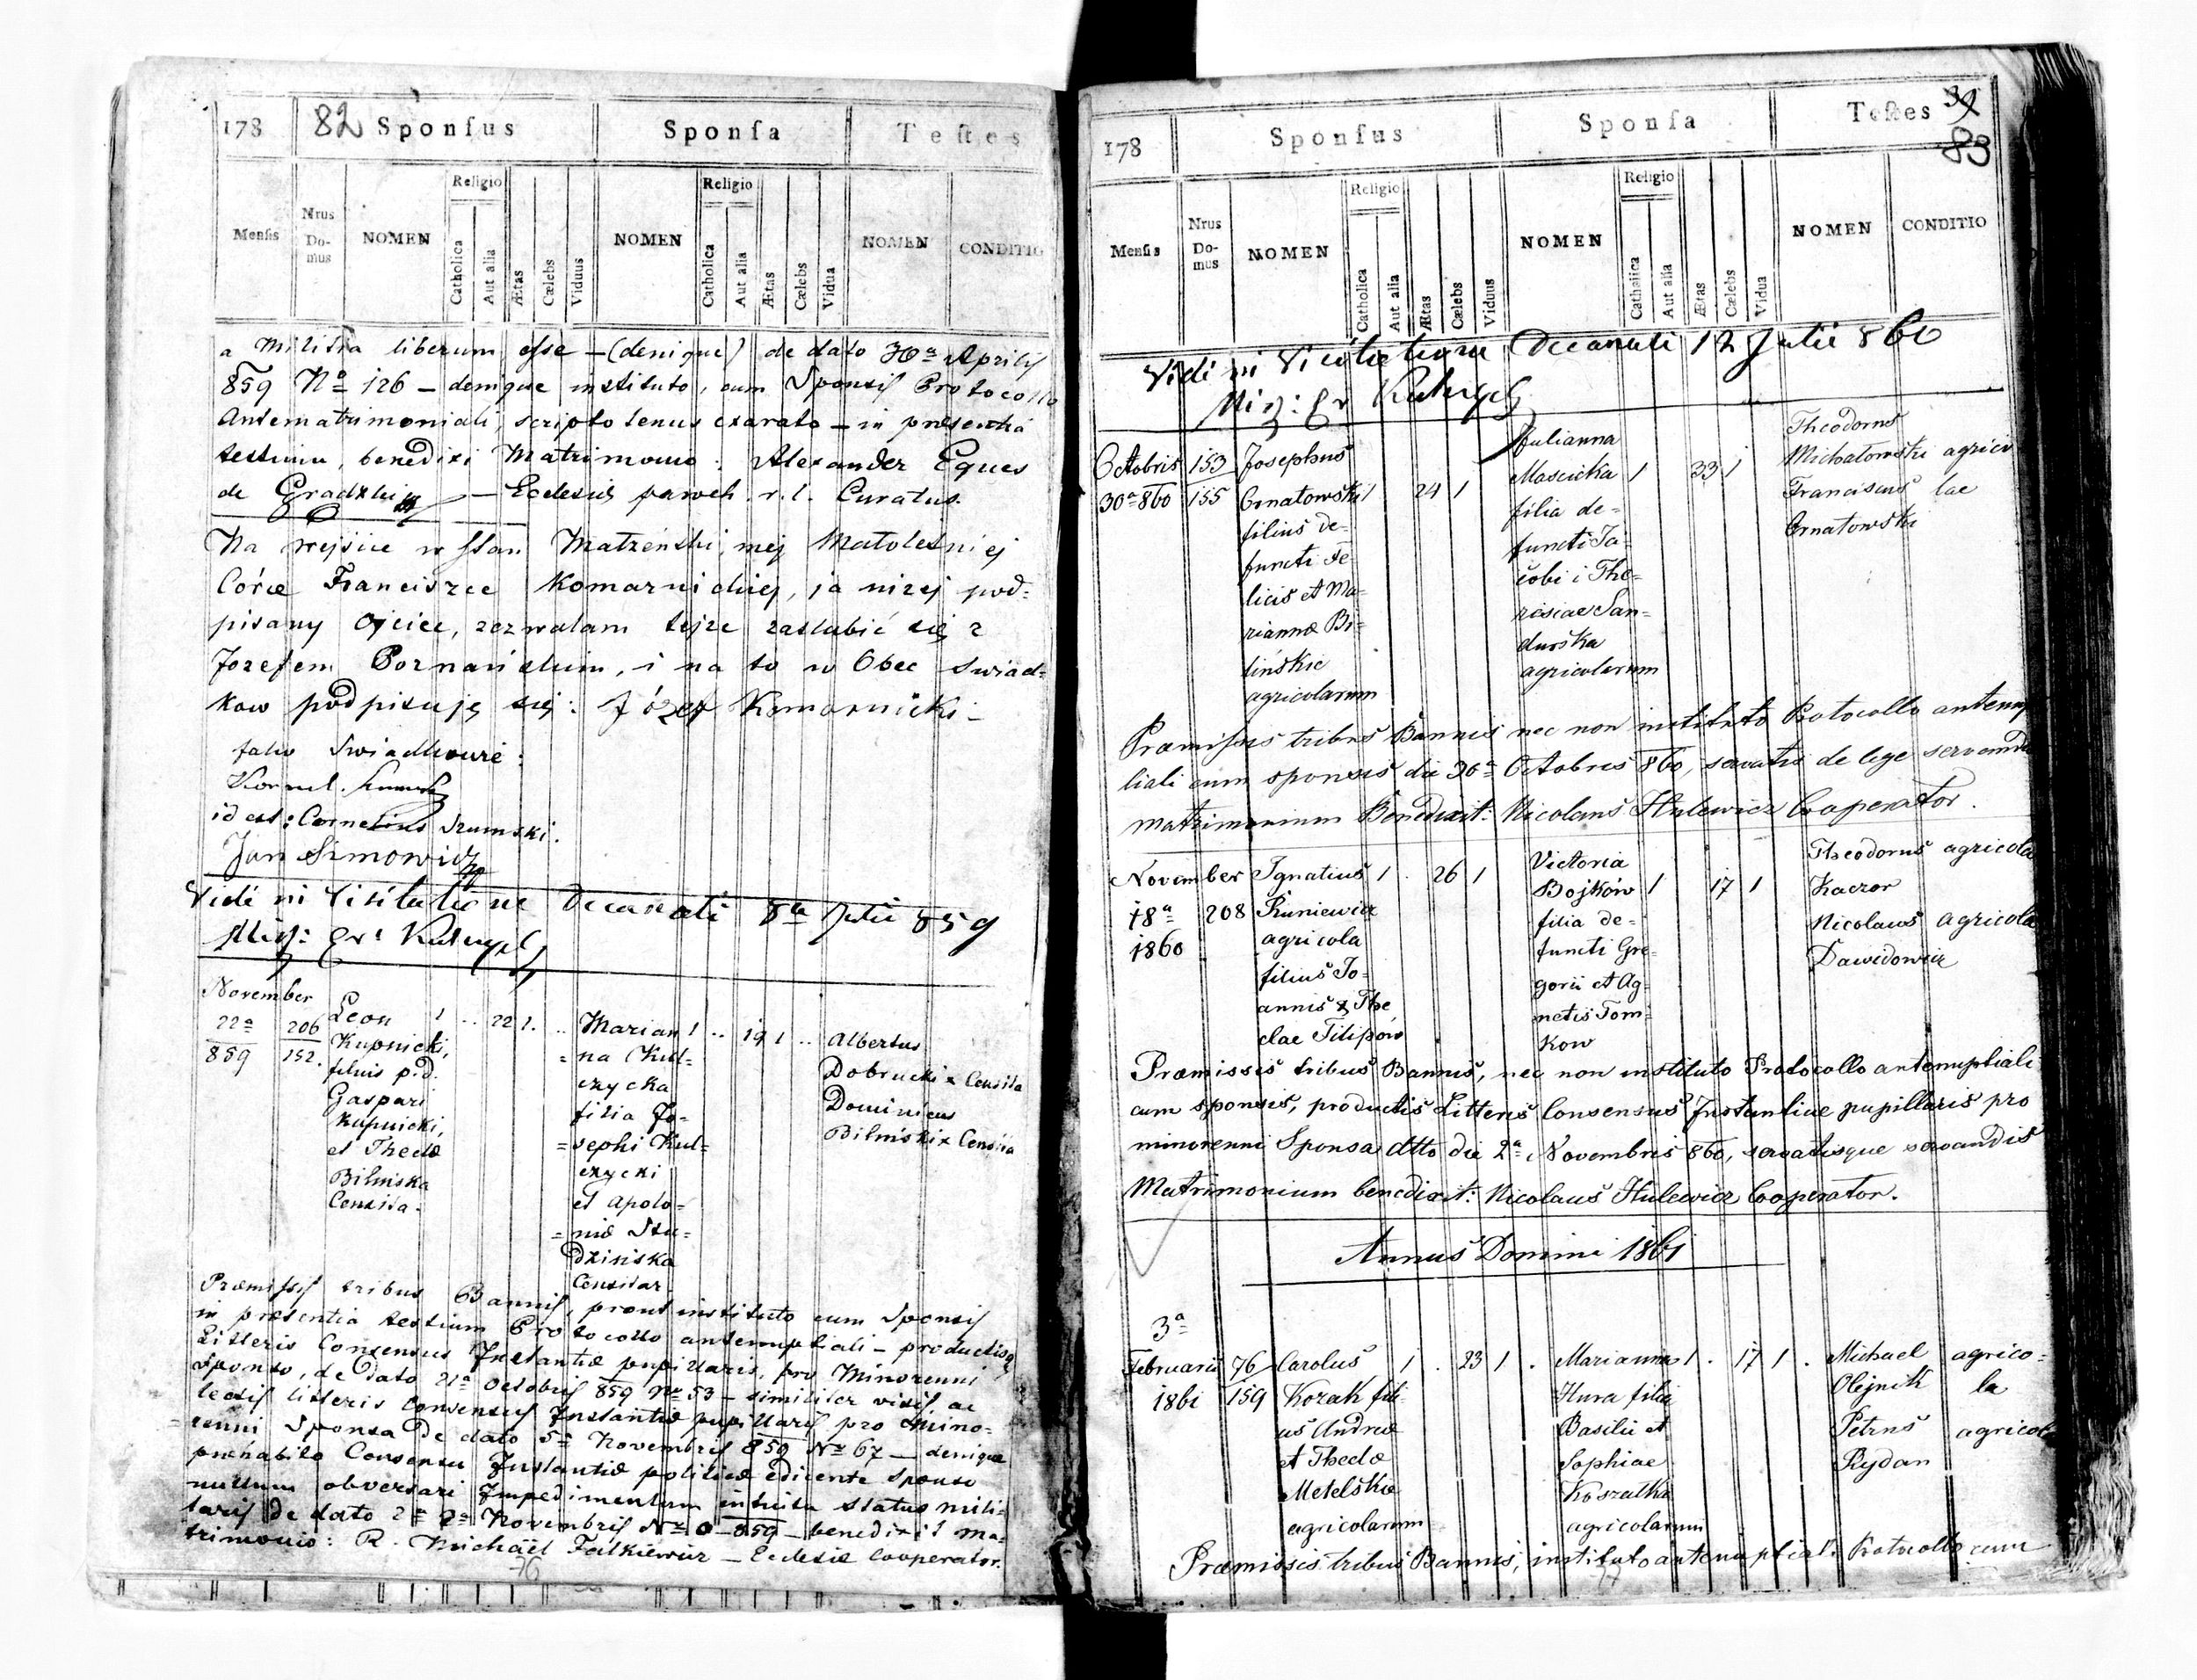 178
82
Sponſus
Sponſa
Teſtes
Menſis
Nrus Do-mus
NOMEN
Religio
Catholica
Aut alia
Ætas
Cælebs
Viduus
NOMEN
Religio
Catholica
Aut alia
Ætas
Cælebs
Vidua
NOMEN
CONDITIO
a Militia liberum esse – (denique) de dato 30ª Aprilis
859 Nº 126 – denique instituto, cum Sponsis Protocollo
Antematrimoniali, scripto tenus exarato – in presentia
testium, benedixi Matrimonio: Alexander Eques
de – Ecclesiæ paroch. r. l. Curatus.
Na wejście w stan Małżeński, mej Małoletniej
Córce Franciszce Komarnickiej, ja niżej pod-
pisany Ojciec, zezwalam tejże zaślubić się z
Jozefem Poznańskim, i na to w Obec Swiad-
kow podpisuję się: Józef Komarnicki –
jako Swiadkowie:
Kornel.
id est: Cornelius Szumski.
Jan Simowicz
Vidi in Visitatione Decanali 8ª Julii 859
November
22ª
859
206
152.
Leon 1 .. 22 1. ..
Kupnicki,
filius p. d.
Gaspari
Kupnicki,
et Theclæ
Bilinska
Censita.
Marian 1 .. 19 1 ..
= na Kul-
czycka
filia Jo-
= sephi Kul=
czycki
et Apolo-
= niæ Stu=
dzinska
Censitar
Albertus
Dobrucki x Censita
Dominicus
Bilinski x Censita
Præmissis tribus Bannis, prout instituto cum Sponsis
in præsentia testium Protocollo antenuptiali – productisq
Litteris Consensus Instantiæ pupillaris, pro Minorenni
Sponso, de dato 21ª Octobris 859 Nº 53 – similiter visis, ac
lectis litteris Consensus Instantiæ pupillaris pro Mino-
= renni Sponsa de dato 5ª Novembris 859 Nº 67 – denique
præhabito Consensu Instantiæ politicæ edicente Sponso
nullum obversari Impedimentum intuitu status mili-
taris de dato 2ª Novembris Nº 0 – 859 – benedixit Ma-
trimonio: R. Michaël Falkiewicz – Ecclesiæ Cooperator.
76
178
Sponſus
Sponſa
Teſtes
83
Menſis
Nrus Do-mus
NOMEN
Religio
Catholica
Aut alia
Ætas
Cælebs
Viduus
NOMEN
Religio
Catholica
Aut alia
Ætas
Cælebs
Vidua
NOMEN
CONDITIO
Vidi in Visitatione Decanali 12 Julii 860
Octobris
30ª 860
153
155
Josephus
Ornatowski 1 24 1
filius de-
functi Fe-
licis et Ma-
riannæ Bi-
lińskie
agricolarum
Julianna
Masucka 1 33 1
filia de=
functi Ja-
cobi i The-
resiae San-
durska
agricolarum
Theodorus
Michałowski agrico
Franciscus lae
Ornatowski
Præmissis tribus Bannis nec non instituto Protocollo antenup
tiali cum sponsis die 30ª Octobris 860, servatis de lege servandis
matrimonium Benedixit: Nicolaus Hulewicz Cooperator.
November
18ª
1860
208
Ignatius 1 . 26 1
Runiewicz
agricola
filius Jo-
annis & The
clae Filipów
Victoria
Bojków 1 17 1
filia de-
functi Gre-
gorii et Ag-
netis Tom-
kow
Theodorus agricola
Kaczor
Nicolaus agricola
Dawidowicz
Præmissis tribus Bannis, nec non instituto Protocollo antenuptiali
cum sponsis, productis Litteris Consensus Instantiae pupillaris pro
minorenni Sponsa dtto die 2ª Novembris 860, servatisque servandis
Matrimonium benedixit: Nicolaus Hulewicz Cooperator.
Annus Domini 1861
3ª
Februarii
1861
76
159
Carolus 1 . 23 1 .
Kozak fili-
us Andreæ
et Theclæ
Metelskie
agricolarum
Marianna 1 . 17 1 .
Hura filia
Basilii et
Sophiae
Koszałka
agricolarum
Michael agrico-
Olejnik la
Petrus agricola
Rydan
Præmissis tribus Bannis, instituto antenuptiali Protocollo cum
77